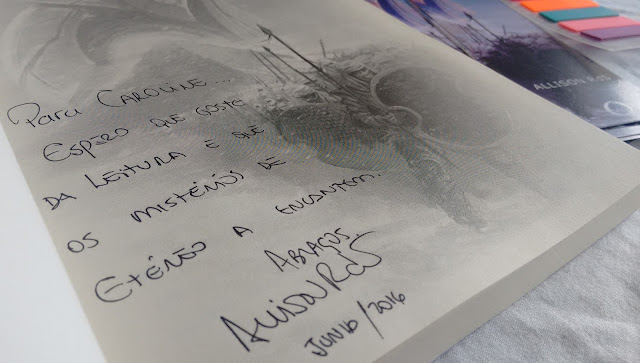 Para Caroline...
Espero que goste
da leitura e que
os mistérios de
Etéreo a encantem.
Abraços,
Allison RdS
Junho/2016
ALLISON RdS